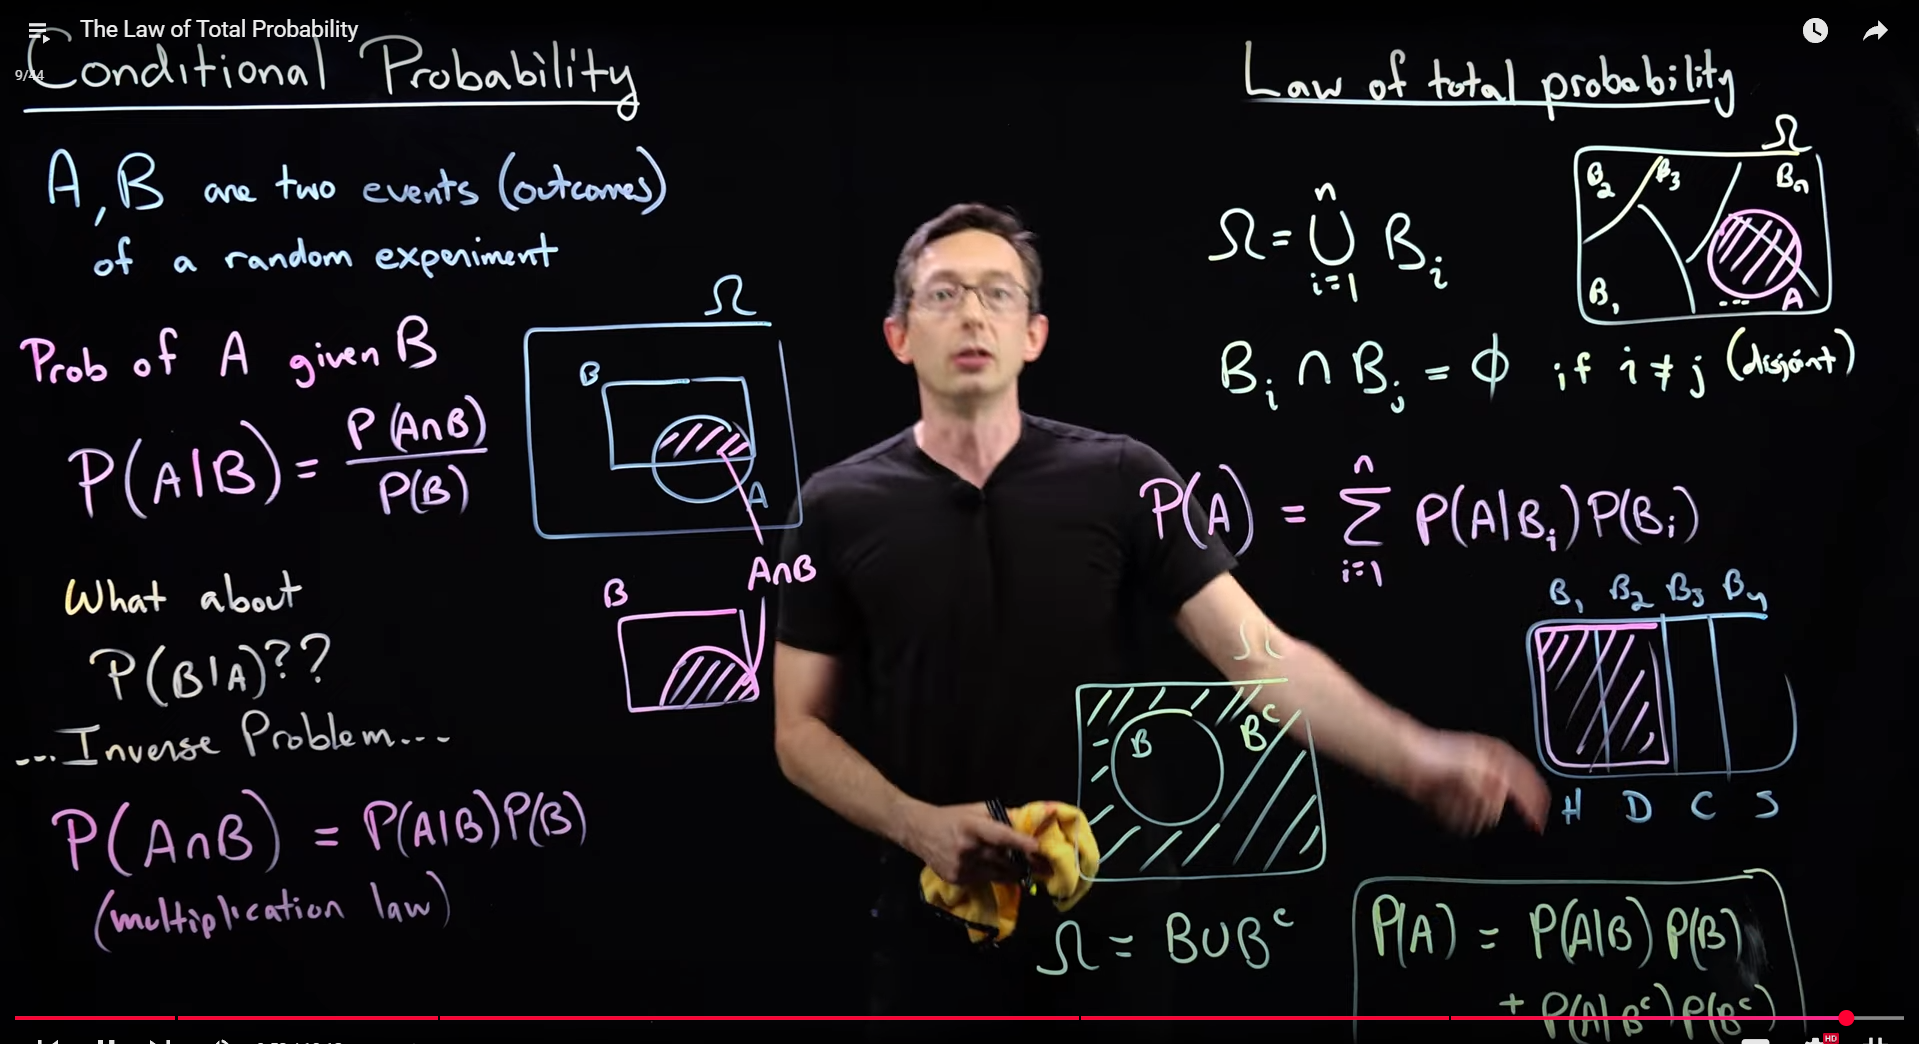 The Law of Total Probability
9/44
Conditional Probability
A, B are two events (outcomes)
of a random experiment
Prob of A given B
P(A|B) = P(A∩B) / P(B)
Ω
B
A
A∩B
B
What about
P(B|A)??
...Inverse Problem...
P(A∩B) = P(A|B)P(B)
(multiplication law)
Law of total probability
Ω
B₂ B₃ Bₙ
B₁ ... A
Ω = ⋃ⁿᵢ₌₁ Bᵢ
Bᵢ ∩ Bⱼ = ϕ if i ≠ j (disjoint)
P(A) = ∑ⁿᵢ₌₁ P(A|Bᵢ)P(Bᵢ)
B₁ B₂ B₃ B₄
H D C S
Ω
B Bᶜ
Ω = B∪Bᶜ
P(A) = P(A|B) P(B)
+ P(A|Bᶜ) P(Bᶜ)
HD